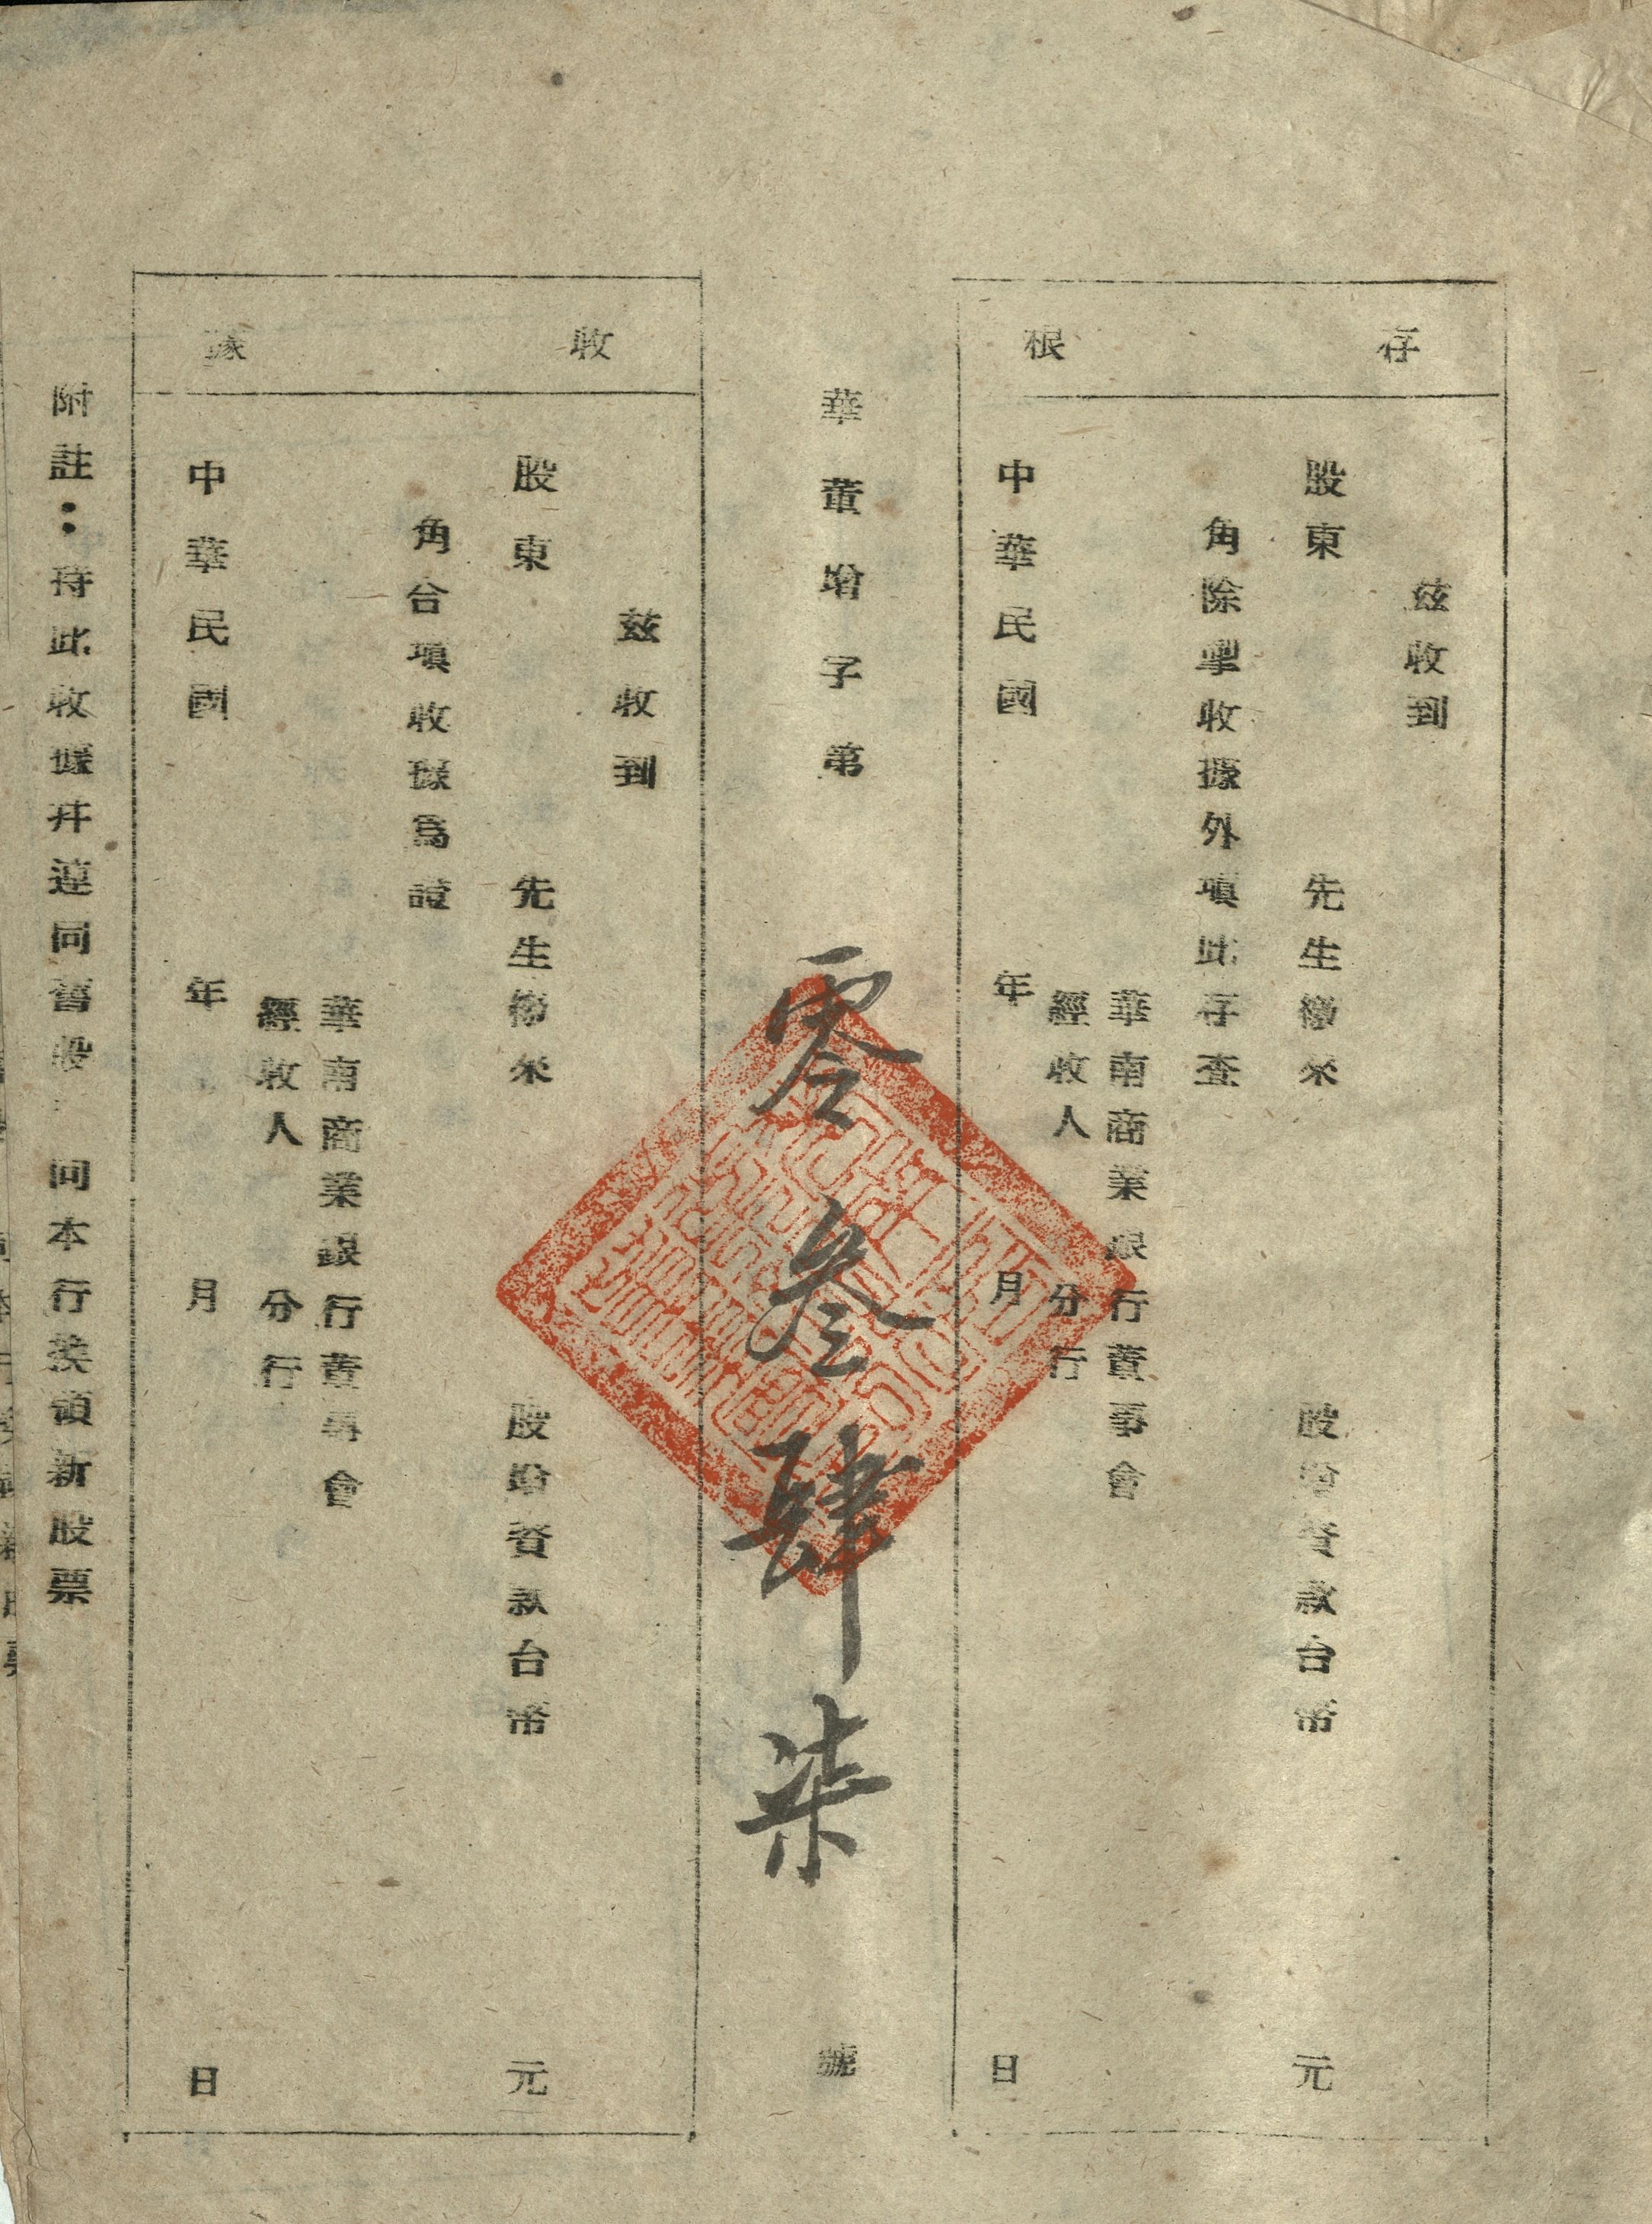 存根
茲收到
股東 先生繳來 股增資款台幣 元
角除掣收據外填此存查
華南商業銀行董事會
經收人 分行
中華民國 年 月 日
華董增字第 零叁肆柒 號
收據
茲收到
股東 先生繳來 股增資款台幣 元
角合填收據為證
華南商業銀行董事會
經收人 分行
中華民國 年 月 日
附註：持此收據幷連同舊股 向本行換領新股票